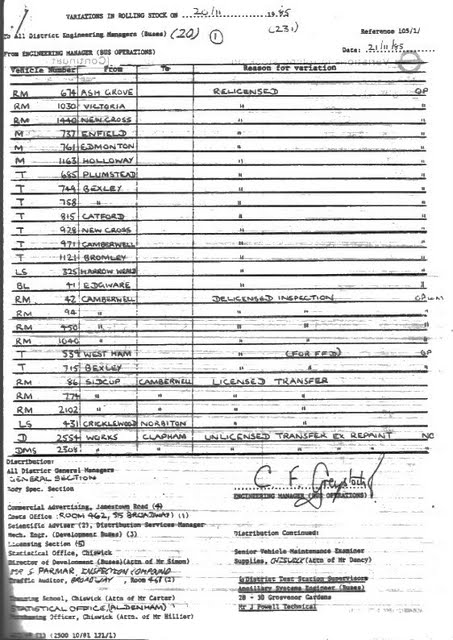 VARIATIONS IN ROLLING STOCK ON 20/11 1985
To All District Engineering Managers (Buses) (20) (1) (231) Reference 105/1/
From ENGINEERING MANAGER (BUS OPERATIONS) Date: 21/11/85
Vehicle Number From To Reason for variation
RM 674 ASH GROVE RELICENSED OP
RM 1030 VICTORIA " "
RM 1440 NEW CROSS " "
M 737 ENFIELD " "
M 761 EDMONTON " "
M 1163 HOLLOWAY " "
T 685 PLUMSTEAD " "
T 744 BEXLEY " "
T 758 " " "
T 815 CATFORD " "
T 928 NEW CROSS " "
T 971 CAMBERWELL " "
T 1121 BROMLEY " "
LS 325 HARROW WEALD " "
BL 41 EDGWARE " "
RM 42 CAMBERWELL DELICENSED INSPECTION
RM 94 " " "
RM 450 " " " "
RM 1040 " " " "
T 539 WEST HAM " (FOR FFD) OP
T 715 BEXLEY " "
RM 86 SIDCUP CAMBERWELL LICENSED TRANSFER
RM 774 " " " "
RM 2102 " " " "
LS 431 CRICKLEWOOD NORBITON " "
D 2554 WORKS CLAPHAM UNLICENSED TRANSFER EX REPAINT NC
DMS 2308 " " " " " " "
Distribution:
All District General Managers
GENERAL SECTION
Body Spec. Section
C F
ENGINEERING MANAGER (BUS OPERATIONS)
Commercial Advertising, Jamestown Road (4)
Costs Office (ROOM 462, 55 BROADWAY) (1)
Scientific Adviser (2), Distribution Services Manager
Mech. Engr. (Development Buses) (3)
Licensing Section (5)
Statistical Office, Chiswick
Director of Development (Buses)(Attn of Mr Simon)
MR S PARMAR, INSPECTION COMPOUND
Traffic Auditor, BROADWAY, Room 461 (2)
Training School, Chiswick (Attn of Mr Carter)
STATISTICAL OFFICE (ALDENHAM)
Officer, Chiswick (Attn. of Mr Hillier)
Distribution Continued:
Senior Vehicle Maintenance Examiner
Supplies, CHISWICK (Attn of Mr Dancy)
6 District Test Station Supervisors
Ancillary Systems Engineer (Buses)
28 - 30 Grosvenor Gardens
Mr J Powell Technical
(1) (2500 10/81 171/1)